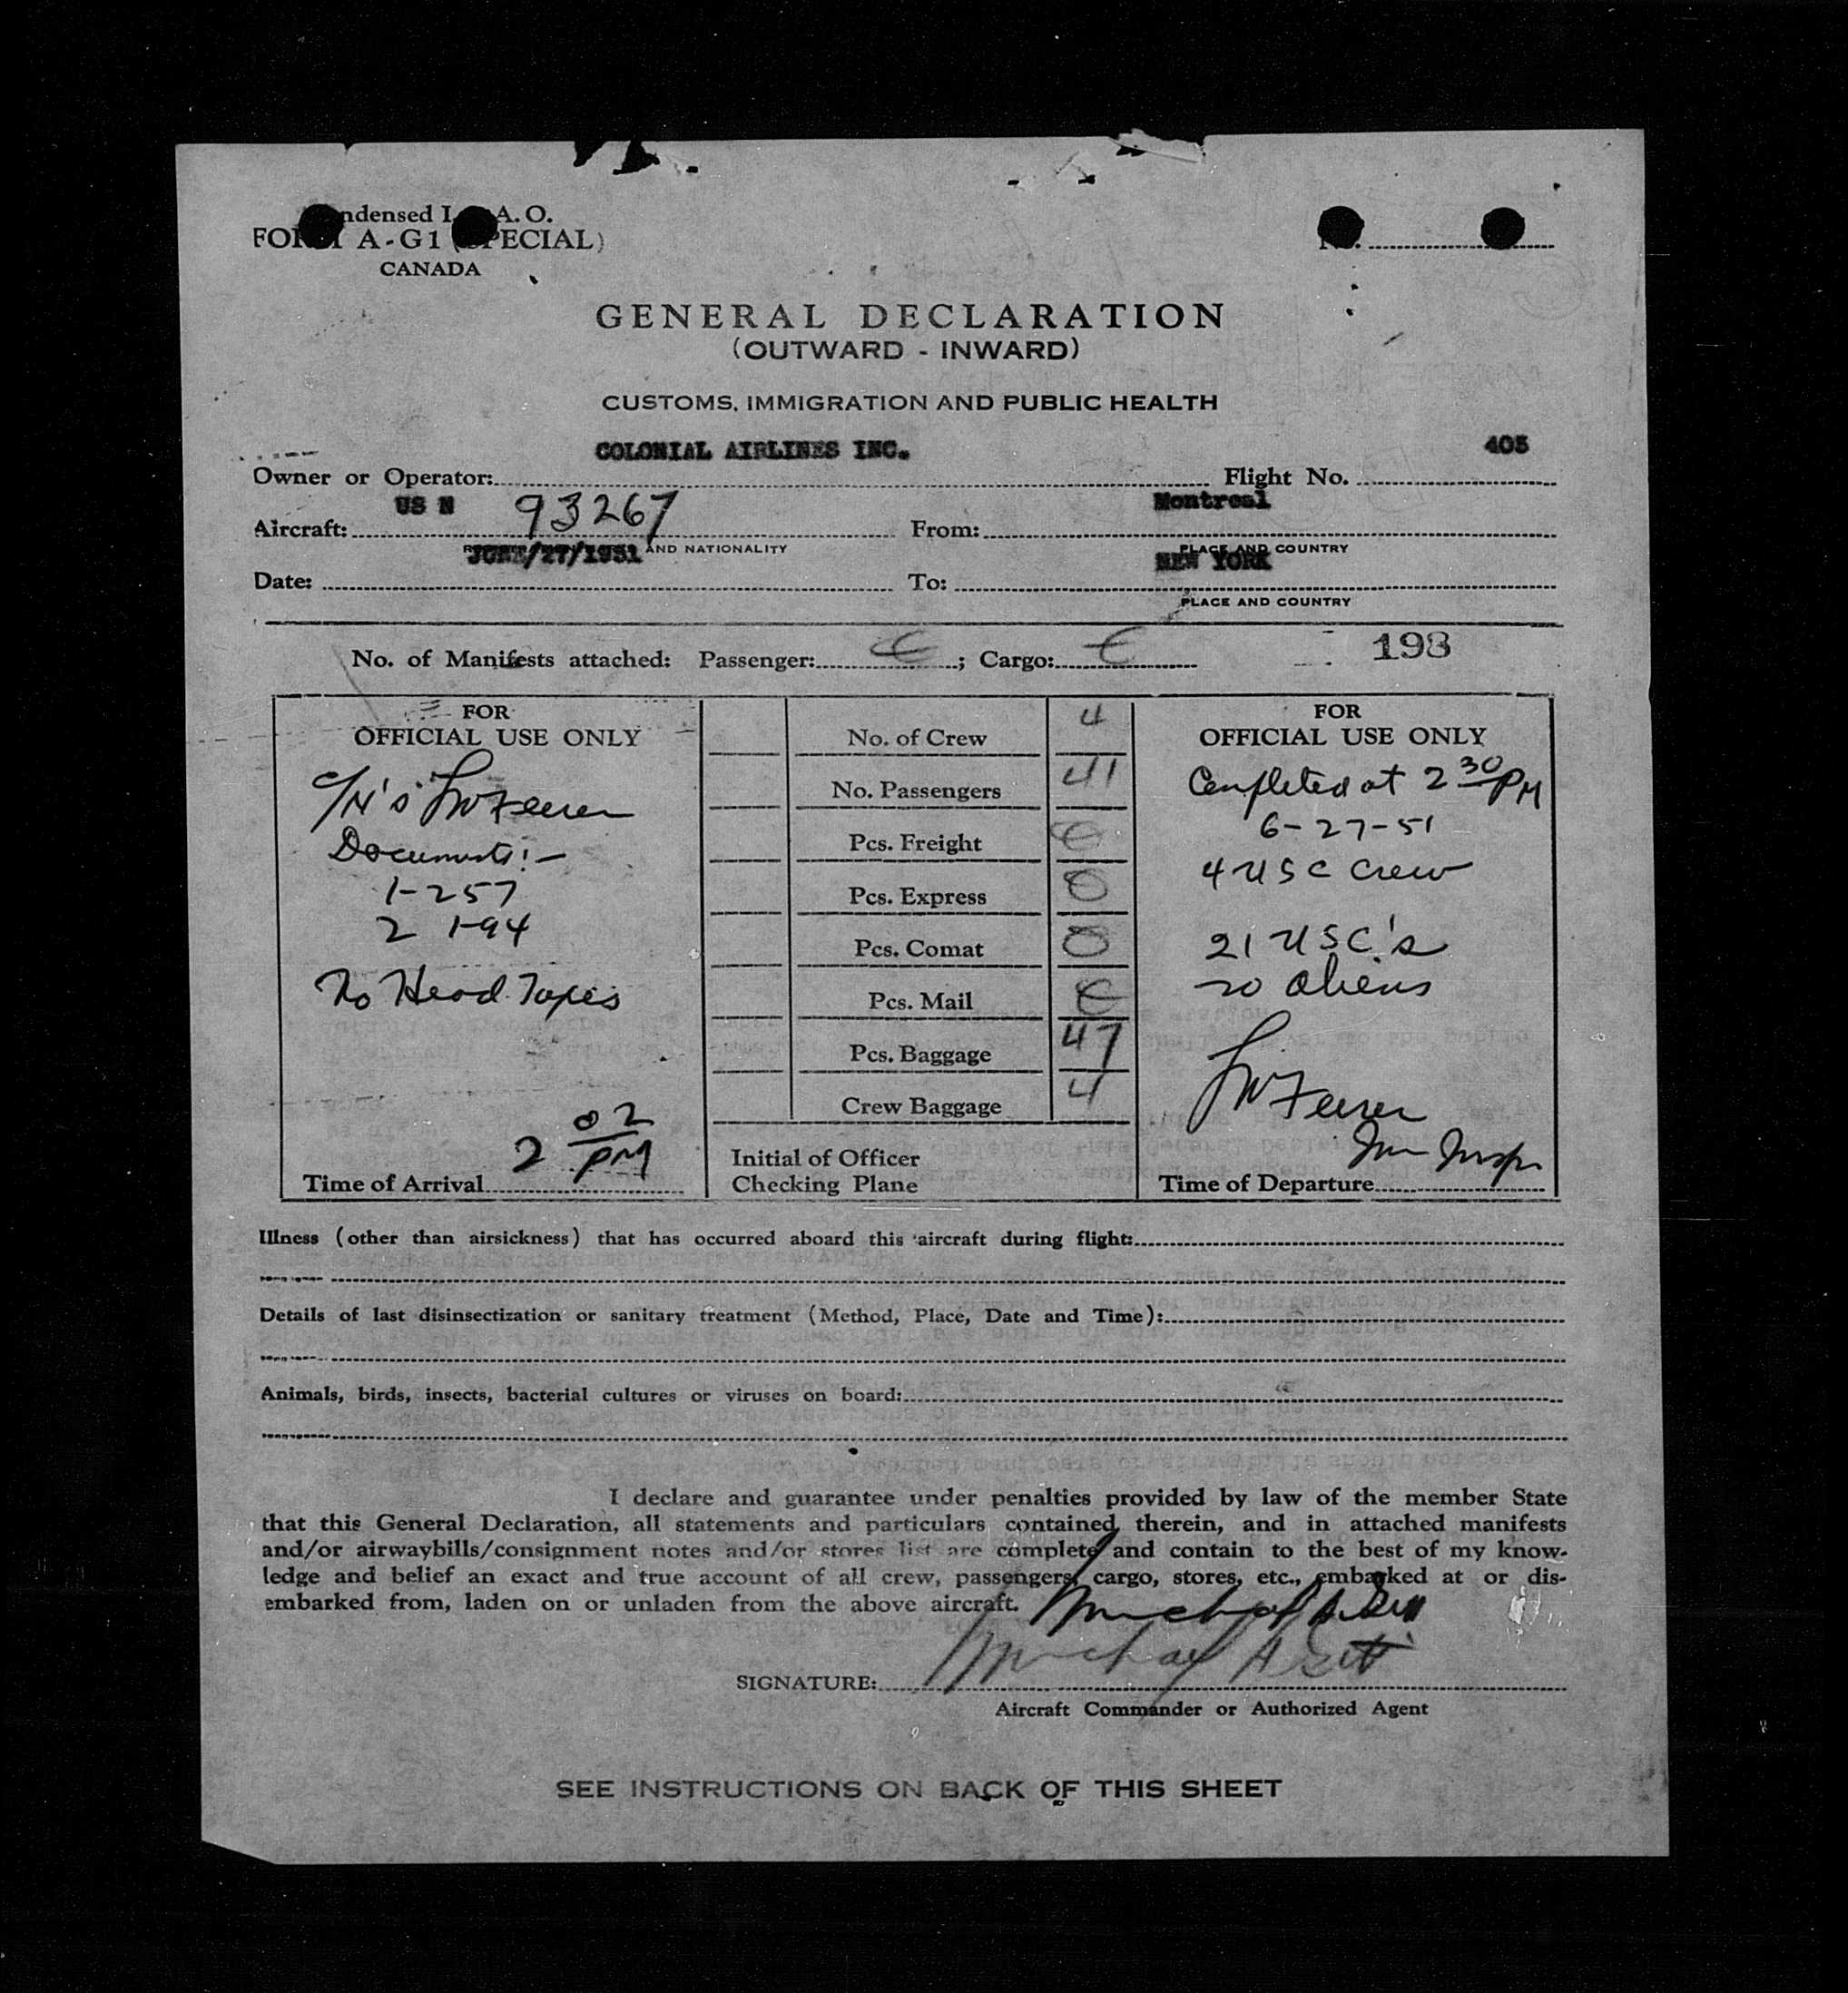 ndensed I. A. O.
FORM A-G1 (SPECIAL)
CANADA
No.
GENERAL DECLARATION
(OUTWARD - INWARD)
CUSTOMS, IMMIGRATION AND PUBLIC HEALTH
Owner or Operator: COLONIAL AIRLINES INC. Flight No. 405
Aircraft: US N 93267 From: Montreal
AND NATIONALITY PLACE AND COUNTRY
Date: JUNE/27/1951 To: NEW YORK
PLACE AND COUNTRY
No. of Manifests attached: Passenger: ; Cargo: 193
FOR
OFFICIAL USE ONLY
C/N's
Documents:-
1-257
2 1-94
No Head Taxes
Time of Arrival 2 02 PM
No. of Crew 4
No. Passengers 41
Pcs. Freight
Pcs. Express 0
Pcs. Comat 0
Pcs. Mail
Pcs. Baggage 47
Crew Baggage 4
Initial of Officer
Checking Plane
FOR
OFFICIAL USE ONLY
Completed at 2 30 PM
6-27-51
4 USC Crew
21 USC's
20 Aliens
Imm Inspr
Time of Departure
Illness (other than airsickness) that has occurred aboard this aircraft during flight:
Details of last disinsectization or sanitary treatment (Method, Place, Date and Time):
Animals, birds, insects, bacterial cultures or viruses on board:
I declare and guarantee under penalties provided by law of the member State
that this General Declaration, all statements and particulars contained therein, and in attached manifests
and/or airwaybills/consignment notes and/or stores list are complete and contain to the best of my know-
ledge and belief an exact and true account of all crew, passengers, cargo, stores, etc., embarked at or dis-
embarked from, laden on or unladen from the above aircraft.
SIGNATURE:
Aircraft Commander or Authorized Agent
SEE INSTRUCTIONS ON BACK OF THIS SHEET